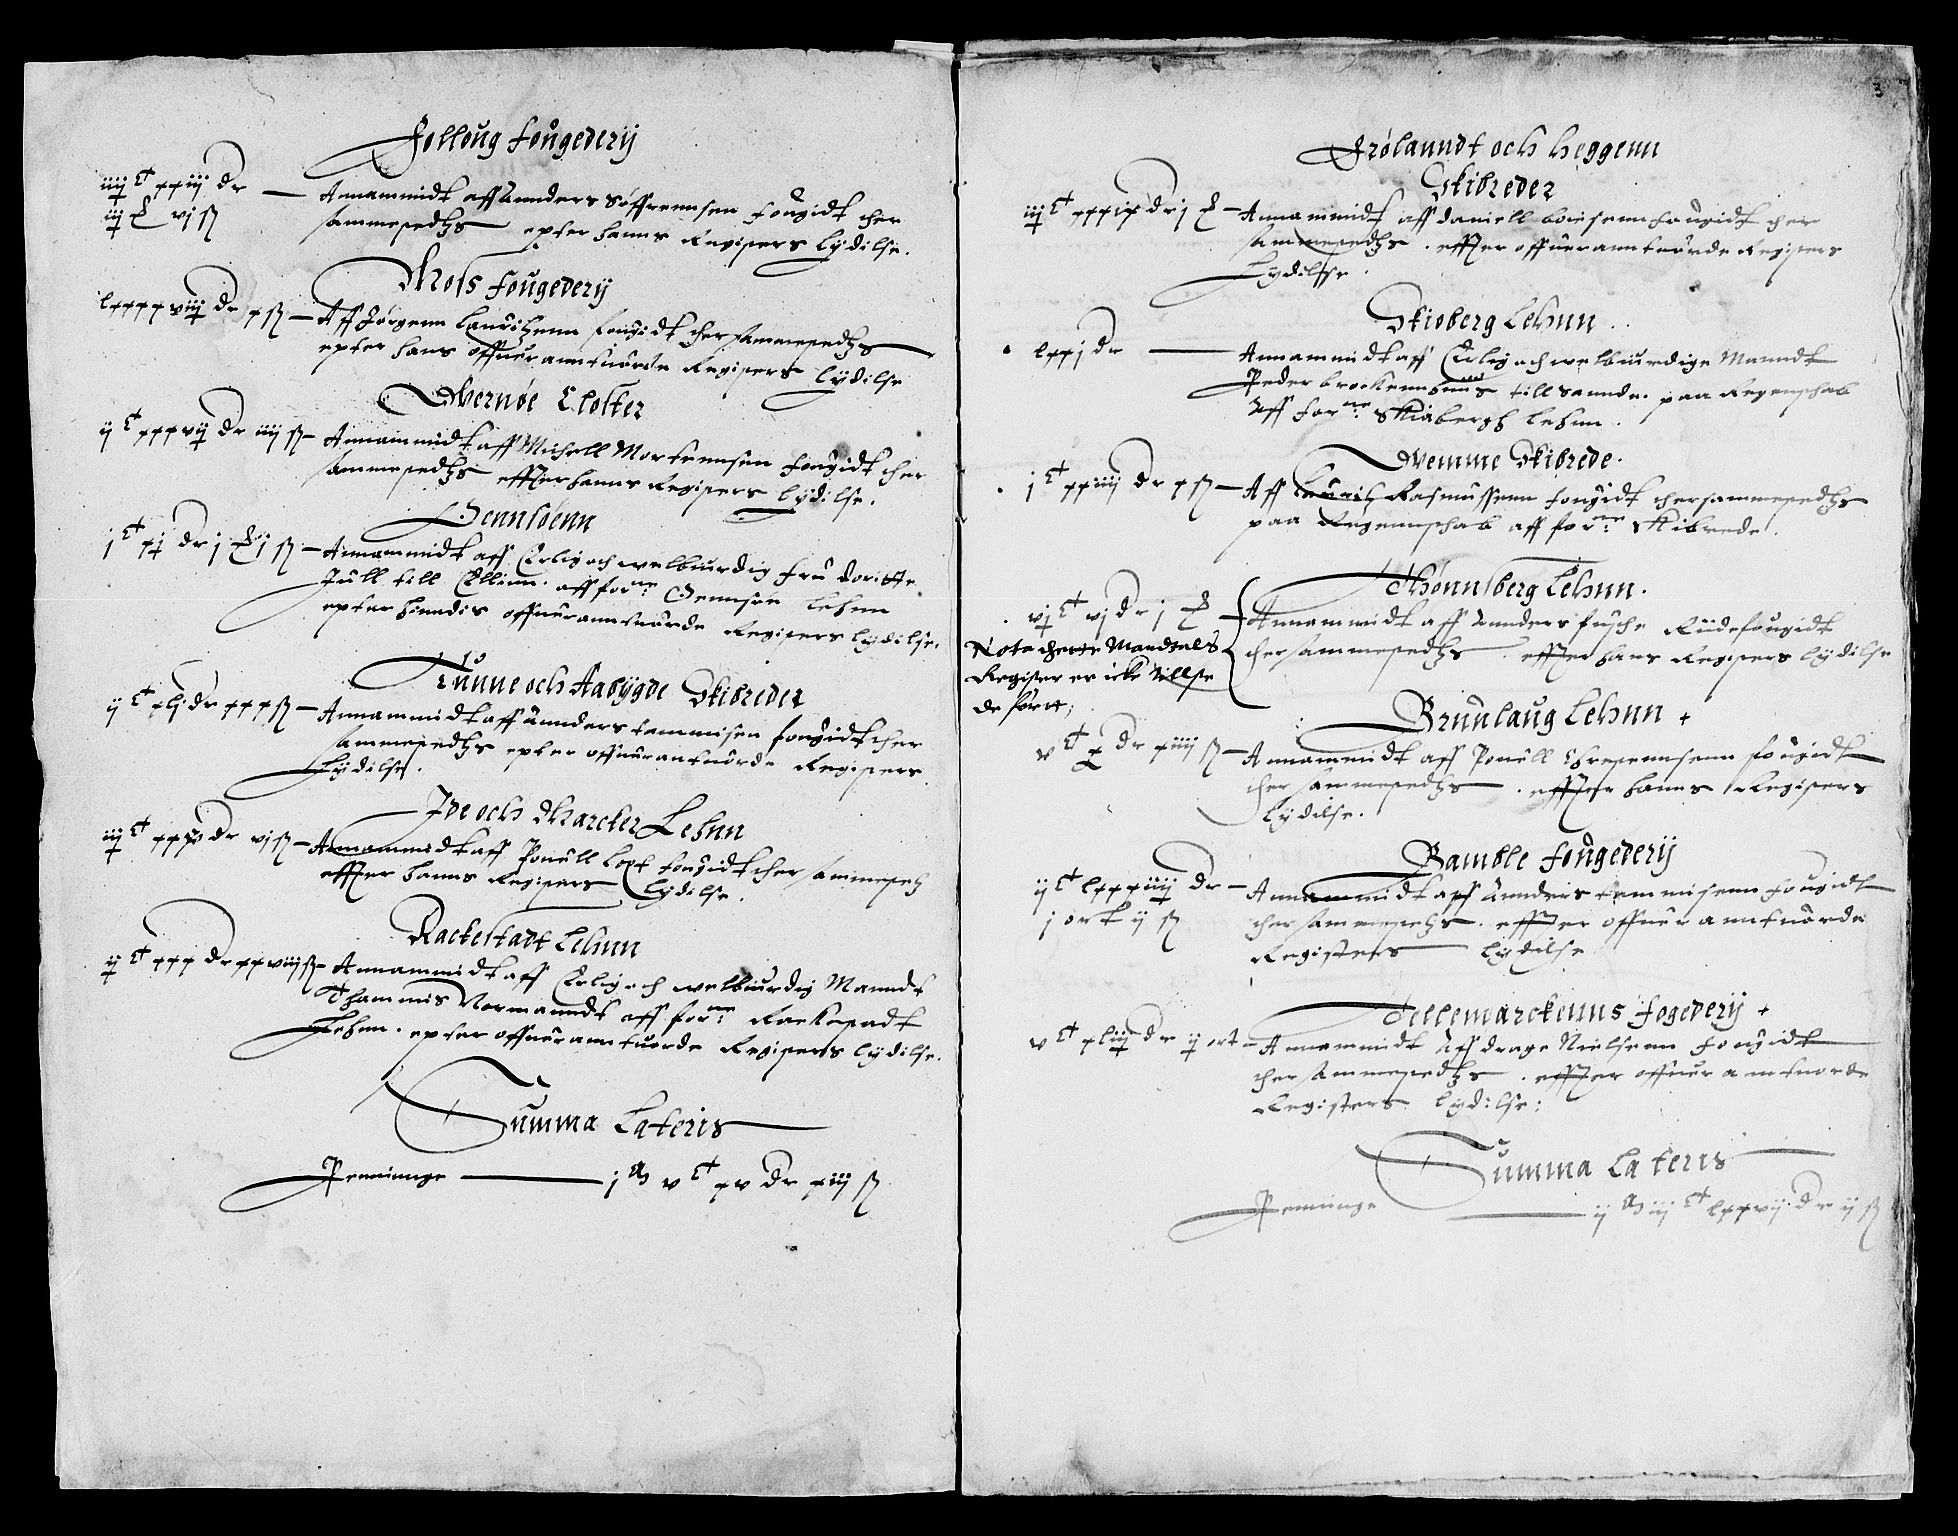 Folloug fougederij
iiij C xxiij dr — Annammidt aff Annders Søffrennsen fougidt ther
iij ort vj ß sammestedtzs epter hanns Registers lydilse.
Moss fougederij
lxxxxviij dr x ß — Aff Jørgenn Lauritzenn fougidt thersammestedtzs
epter hans offueranntuorde Registers lydilse
Wernøe Closter
ij C xxxvij dr iiij ß — Annammidt aff Michell Mortennsen fougidt ther
sammestedtzs effter hanns Registers lydilse.
Jennsøenn
j C xj dr j ort j ß — Annammidt aff Erlig och welburdig fru Doritte
Jull till Ellinn. aff forne: Jennsøe lehnn
epter hinndis offuerantuorde Registers lydilse.
Tunne och Aabygde Skibreder
ij C xlj dr xxx ß — Annammidt aff Annders tammisen fougidt ther
sammestedtzs epter offuerantuorde Registers
lydilse.
Ide och Marcker Lehnn
iiij C xxv dr vj ß — Annammidt aff Pouell Loxt fougidt ther sammested
effter hanns Registers lydilse.
Rackestadt Lehnn
ij C xxx dr xxviij ß — Annammidt aff Erlig och welburdig Manndt
Thammis Normanndt aff forne: Rackestadt
Lehnn. epter offuerantuorde Registers lydilse.
Summa Lateris
Penninnge — j M v C xv dr xiij ß
3
Frølanndt och Heggenn
Skibreder
iij C xxxix dr j ort — Annammidt aff Daniell boiesenn fougidt ther
sammestedtzs. effter offuerantuorde Registers
Lydilsse.
Skioberg Lehnn.
lxxj dr — Annammidt aff Erlig och welbiurdige Manndt
Peder brockennhuus till sannde. paa Regenschab
Aff forne: Skiabergh lehnn.
Wemme Skibrede.
j C xxiiij dr x ß — Aff Lauritz Rasmussenn fougidt thersammestedtzs
paa Regennschab aff forne: Skibrede.
Thønnsberg Lehnn.
vj C vj dr j ort — Annammidt aff Annders fusche Riidefougidt
Nota thette Mandtals
Register er icke tillste
de førtt,
thersammestedtzs. effter hans Registers lydilse
Bruulaug Lehnn +
v C x dr xiiij ß — Annammidt aff Pouell Threpennsenn fougidt
ther sammestedtzs. effter hanns Registers
lydilse.
Bamble fougederij
ij C lxxxiiij dr — Annammidt aff Annders tammisenn fougidt
j ort ij ß thersammestedtzs. effter offuerantuorde
Registers lydilse
Tellemarckenns fogederij +
v C xliij dr ij ort — Annammidt Aff drage Nielsenn fougidt
thersammestedtzs. effter offuerantuorde
Registers lydilse:
Summa Lateris
Penninge — ij M iij C lxxvij dr ij ß